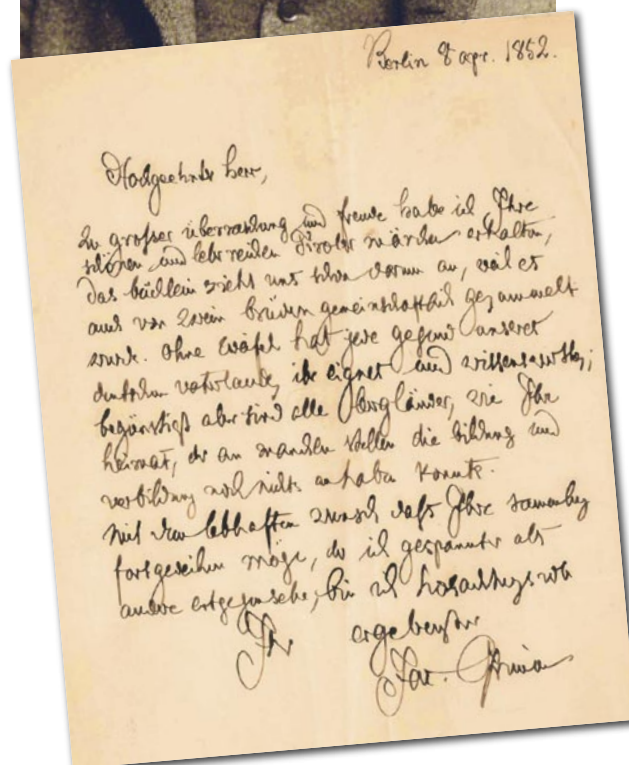 Berlin 8 apr. 1852.
Hochgeehrter herr,
Zu grofser überraschung und freude habe ich Ihre
schönen und lehrreichen Tiroler märchen erhalten,
das büchlein zieht uns schon darum an, weil es
auch von zwein brüdern gemeinschaftlich gesammelt
wurde. Ohne zweifel hat jede gegend unseres
deutschen vaterlands ihr eignes und
begünstigt aber sind alle bergländer, wie Ihre
heimat, der an manchen stellen die bildung und
verbildung noch nichts anhaben konnte.
mit dem lebhaften wunsch dafs Ihre sammlung
fortgedeihen möge, der ich gespannter als
andere entgegensehe, bin ich hochachtungsvoll
Ihr ergebenster
Jac. Grimm